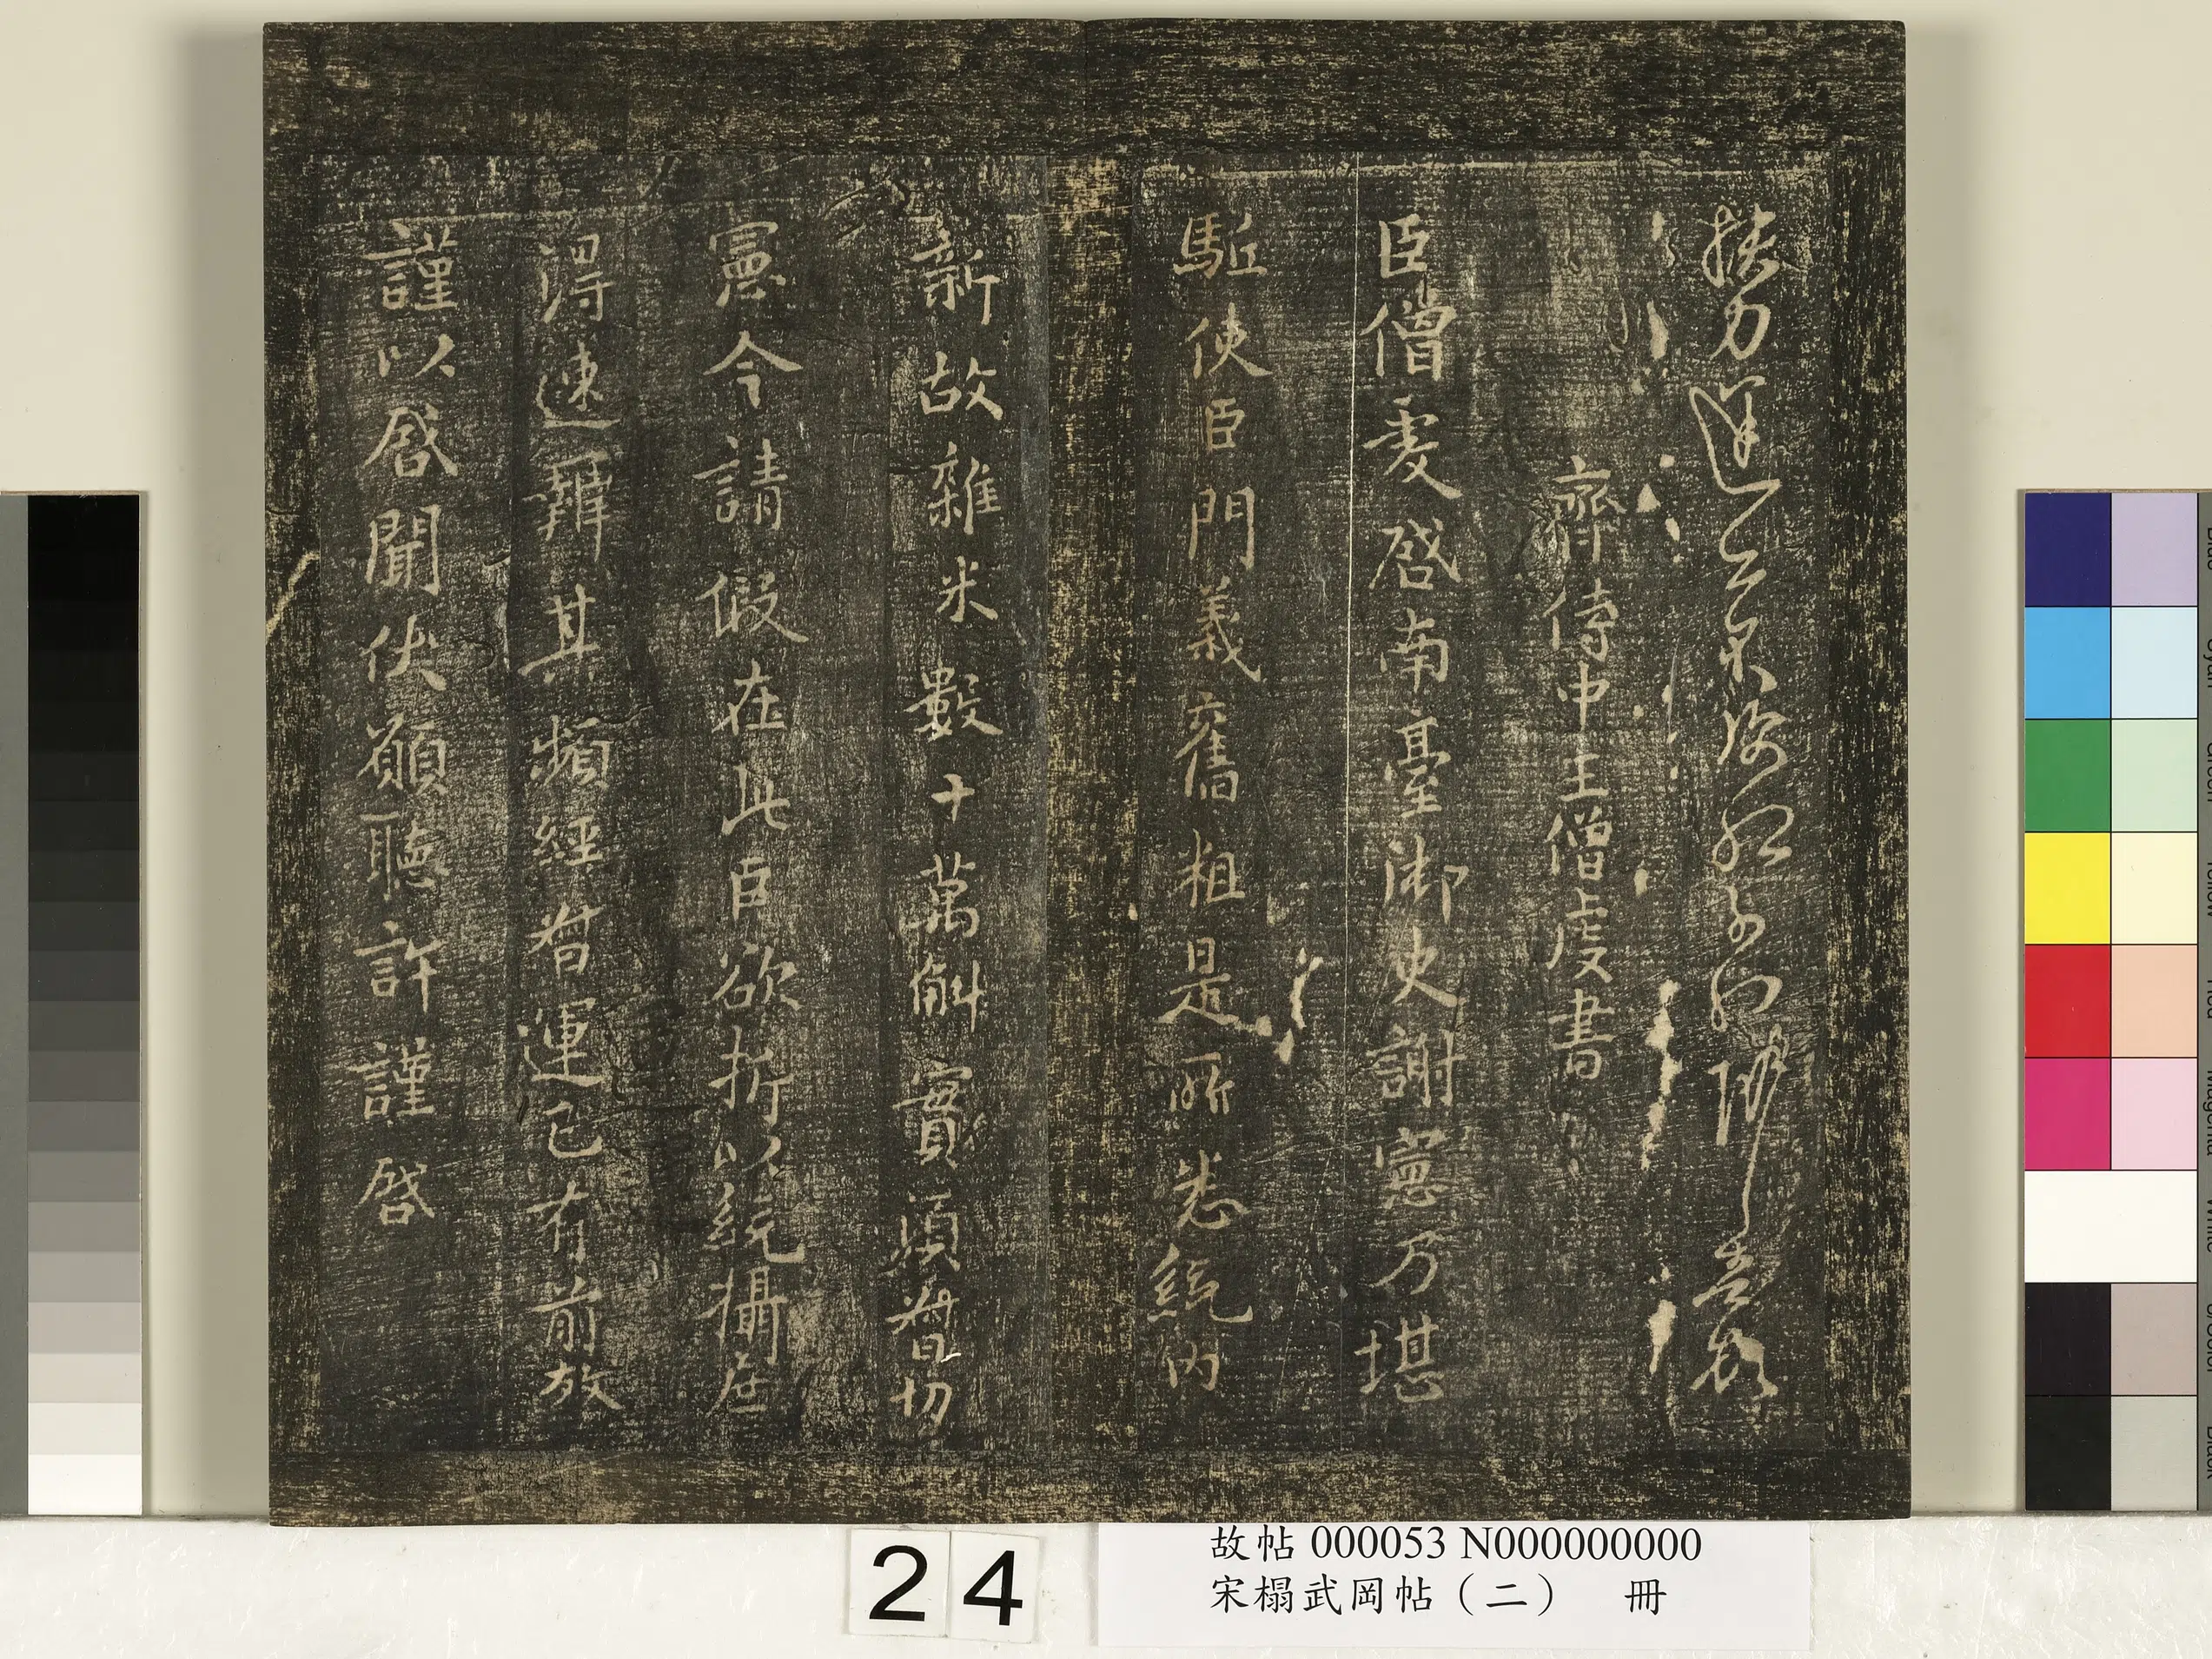 齊侍中王僧虔書
臣僧虔啓南臺御史謝憲乃堪
駈使臣門義舊粗是所悉統內
新故雜米數十萬斛實須督切
憲今請假在此臣欲折以統攝庶
得速辦其頻經督運已有前故
謹以啓聞伏願聽許謹啓
24
故帖 000053 N000000000
宋榻武岡帖（二） 冊